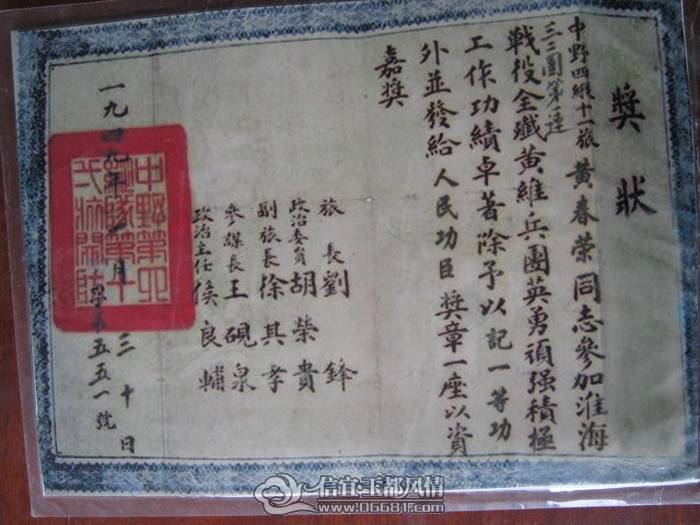 獎狀
中野四縱十一旅
三二團第連
黃春荣同志參加淮海
戰役全殲黃維兵團英勇頑强積極
工作功績卓著除予以記一等功
外並發給人民功臣獎章一座以資
嘉獎
旅長劉鋒
政治委員胡榮貴
副旅長徐其孝
參謀長王硯泉
政治主任侯良輔
一九四九年月三十日
第五五一號
中野第四
縱隊第十
信宜玉都风情
www.06681.com